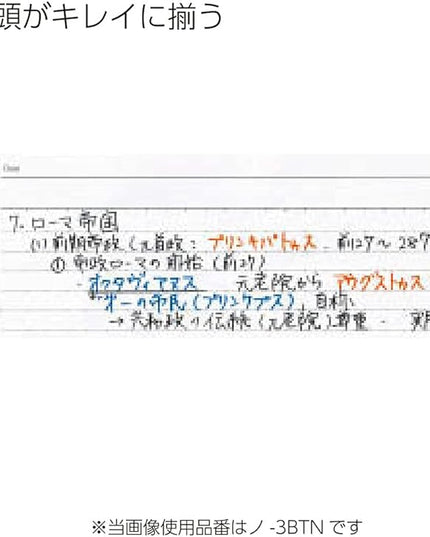 頭がキレイに揃う
Date
7. ローマ帝国
(1) 前期帝政(元首政：プリンキパトゥス 前27〜287
① 帝政ローマの開始(前27)
・オクタヴィアヌス 元老院から アウグストゥス
"第一の市民(プリンケプス)、自称
→ 共和政の伝統(元老院)尊重・
※当画像使用品番はノ-3BTNです